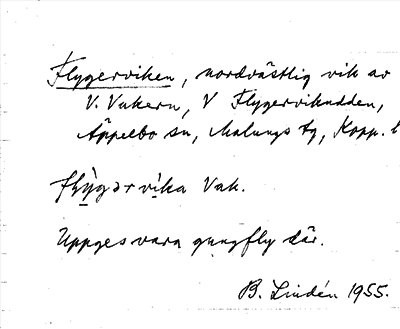 Flygerviken, nordvästlig vik av
V. Vakern, V Flygervikudden,
Äppelbo sn, Malungs tg, Kopp. l
flỳgərvika Vak.
Uppges vara gungfly där.
B. Lindén 1955.